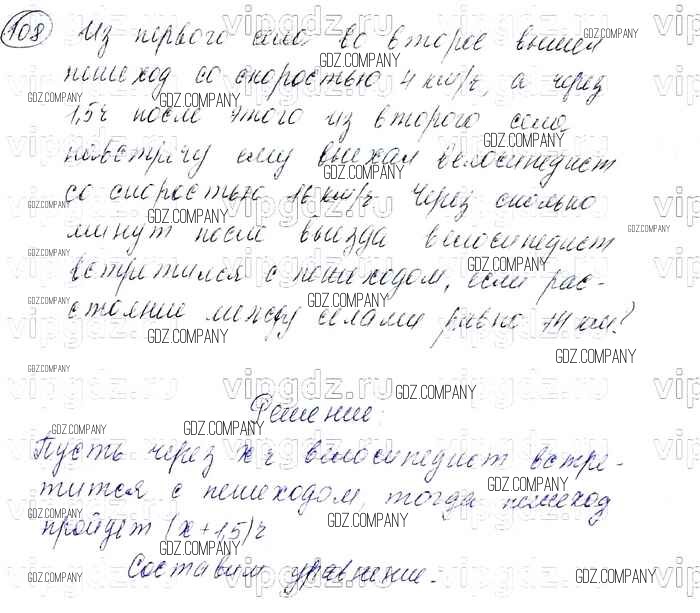 108 Из первого села во второе вышел
пешеход со скоростью 4 км/ч, а через
1,5ч после этого из второго села
навстречу ему выехал велосипедист
со скоростью 16 км/ч. Через сколько
минут после выезда велосипедист
встретился с пешеходом, если рас-
стояние между селами равно 14 км?
Решение:
Пусть через x ч велосипедист встре-
тится с пешеходом, тогда пешеход
пройдет (x+1,5) ч
Составим уравнение.